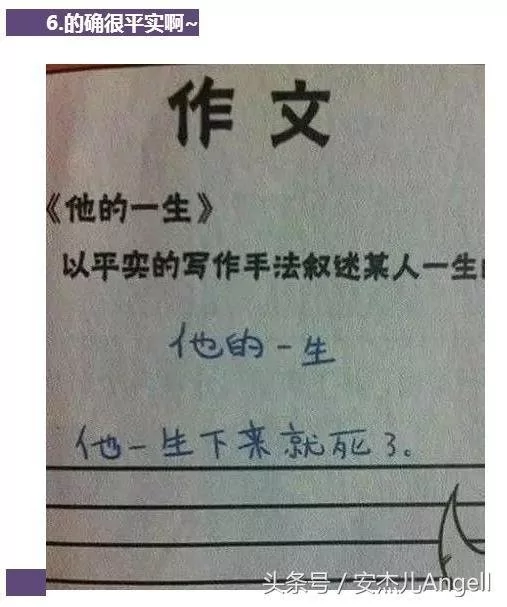 6.的确很平实啊~
作文
《他的一生》
以平实的写作手法叙述某人一生
他的一生
他一生下来就死了。
头条号 / 安杰儿Angell